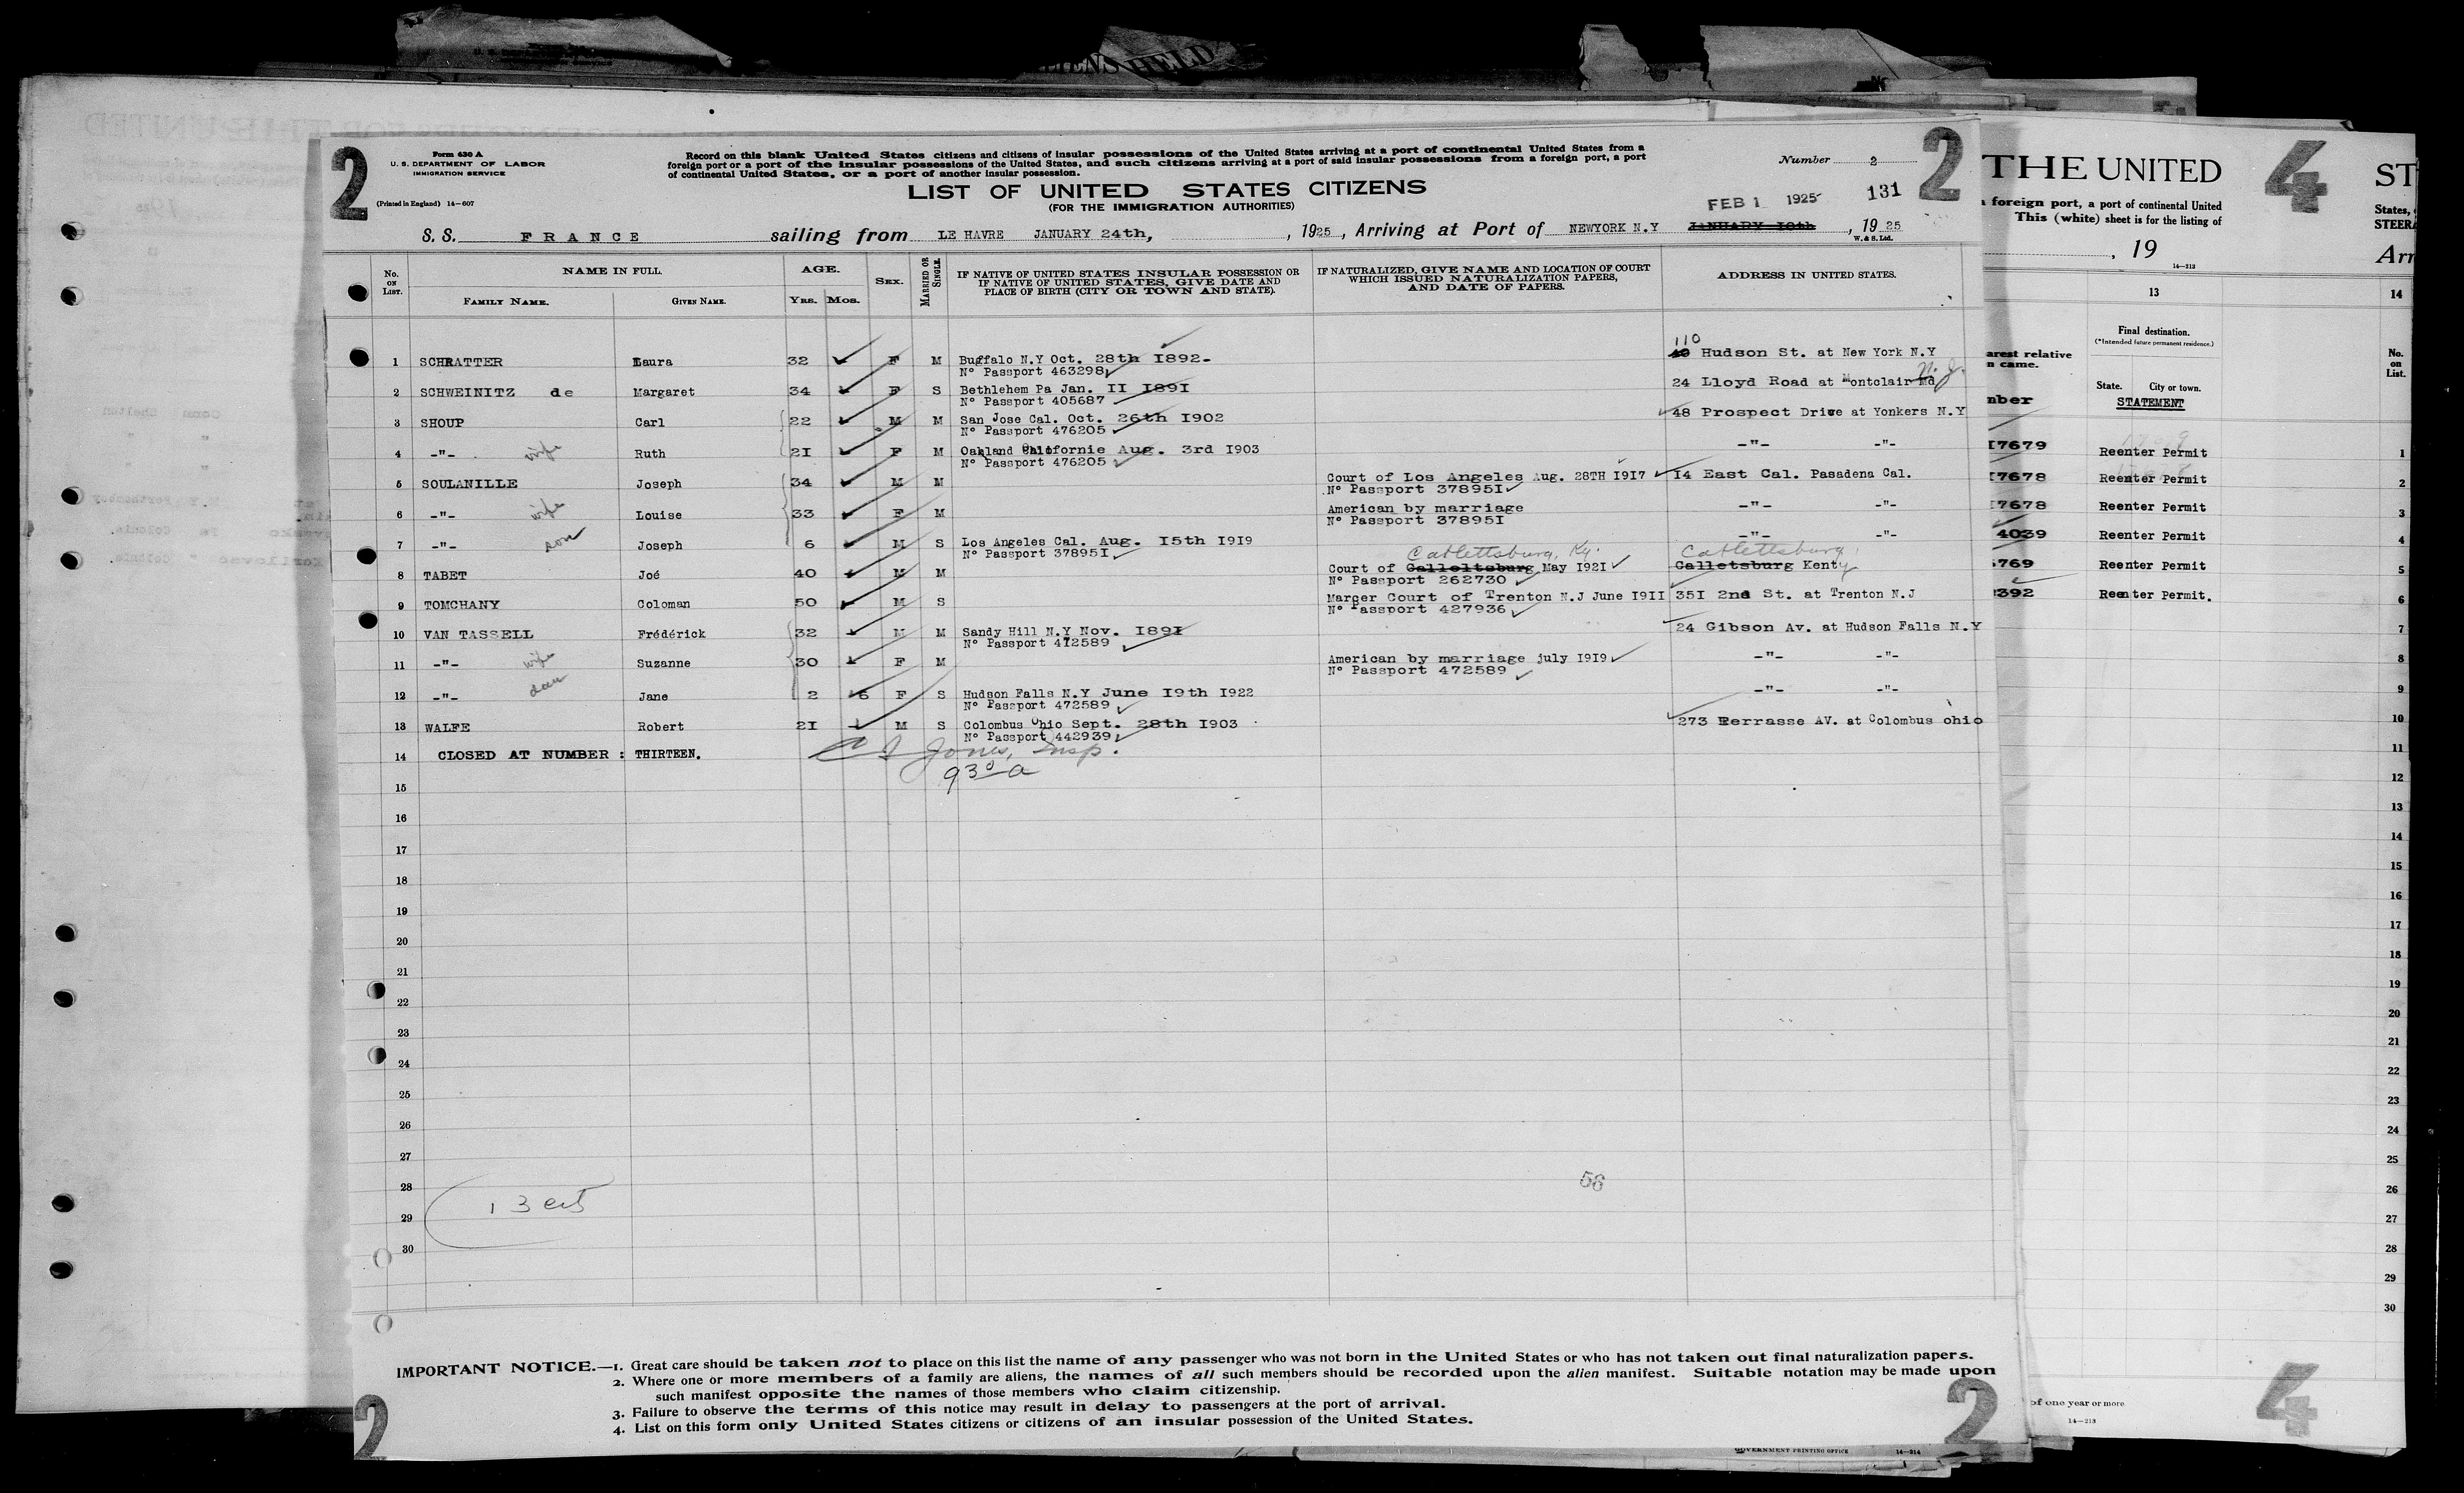 2
Form 630 A
U. S. DEPARTMENT OF LABOR
IMMIGRATION SERVICE
(Printed in England) 14-607
Record on this blank United States citizens and citizens of insular possessions of the United States arriving at a port of continental United States from a
foreign port or a port of the insular possessions of the United States, and such citizens arriving at a port of said insular possessions from a foreign port, a port
of continental United States, or a port of another insular possession.
LIST OF UNITED STATES CITIZENS
(FOR THE IMMIGRATION AUTHORITIES)
Number 2
2
FEB 1 1925 131
S. S. FRANCE sailing from LE HAVRE JANUARY 24th, , 1925, Arriving at Port of NEWYORK N.Y JANUARY 10th, 1925
W. & S. Ltd.
No. ON LIST. NAME IN FULL. AGE. SEX. MARRIED OR SINGLE. IF NATIVE OF UNITED STATES INSULAR POSSESSION OR IF NATIVE OF UNITED STATES, GIVE DATE AND PLACE OF BIRTH (CITY OR TOWN AND STATE). IF NATURALIZED, GIVE NAME AND LOCATION OF COURT WHICH ISSUED NATURALIZATION PAPERS, AND DATE OF PAPERS. ADDRESS IN UNITED STATES.
FAMILY NAME. GIVEN NAME. YRS. MOS.
110
1 SCHRATTER Laura 32 F M Buffalo N.Y Oct. 28th 1892- Hudson St. at New York N.Y
N° Passport 463298
2 SCHWEINITZ de Margaret 34 F S Bethlehem Pa Jan. II I89I 24 Lloyd Road at Montclair Md N.J.
N° Passport 405687
3 SHOUP Carl 22 M M San Jose Cal. Oct. 26th I902 48 Prospect Drive at Yonkers N.Y
N° Passport 476205
4 -"- wife Ruth 2I F M Oakland Californie Aug. 3rd I903 -"- -"-
N° Passport 476205
5 SOULANILLE Joseph 34 M M Court of Los Angeles Aug. 28TH I9I7 I4 East Cal. Pasadena Cal.
N° Passport 37895I
6 -"- wife Louise 33 F M American by marriage -"- -"-
N° Passport 37895I
7 -"- son Joseph 6 M S Los Angeles Cal. Aug. I5th I9I9 -"- -"-
N° Passport 37895I
Catlettsburg, Ky. Catlettsburg
8 TABET Joé 40 M M Court of Calleltsburg May I92I Calletsburg Kenty
N° Passport 262730
9 TOMCHANY Coloman 50 M S Marger Court of Trenton N.J June I9II 35I 2nd St. at Trenton N.J
N° Passport 427936
10 VAN TASSELL Frédérick 32 M M Sandy Hill N.Y Nov. I89I 24 Gibson Av. at Hudson Falls N.Y
N° Passport 472589
11 -"- wife Suzanne 30 F M American by marriage july I9I9 -"- -"-
N° Passport 472589
12 -"- dau Jane 2 6 F S Hudson Falls N.Y June I9th I922 -"- -"-
N° Passport 472589
13 WALFE Robert 2I M S Colombus Ohio Sept. 28th I903 273 Terrasse AV. at Colombus ohio
N° Passport 442939
14 CLOSED AT NUMBER : THIRTEEN. Jones, Insp.
9 30 a
15
16
17
18
19
20
21
22
23
24
25
26
27
28
29
30
13
56
IMPORTANT NOTICE.—1. Great care should be taken not to place on this list the name of any passenger who was not born in the United States or who has not taken out final naturalization papers.
2. Where one or more members of a family are aliens, the names of all such members should be recorded upon the alien manifest. Suitable notation may be made upon
such manifest opposite the names of those members who claim citizenship.
3. Failure to observe the terms of this notice may result in delay to passengers at the port of arrival.
4. List on this form only United States citizens or citizens of an insular possession of the United States.
2
2
THE UNITED
4
foreign port, a port of continental United
This (white) sheet is for the listing of
, 19
14-213
13
Final destination.
(*Intended future permanent residence.)
arest relative
n came.
State. City or town.
mber STATEMENT
I7679 Reenter Permit
I7678 Reenter Permit
I7678 Reenter Permit
4039 Reenter Permit
769 Reenter Permit
392 Reenter Permit.
of one year or more
14-213
4
ST
States,
STEER
Arr
14
No. on List.
1
2
3
4
5
6
7
8
9
10
11
12
13
14
15
16
17
18
19
20
21
22
23
24
25
26
27
28
29
30
GOVERNMENT PRINTING OFFICE 14-214
HELD